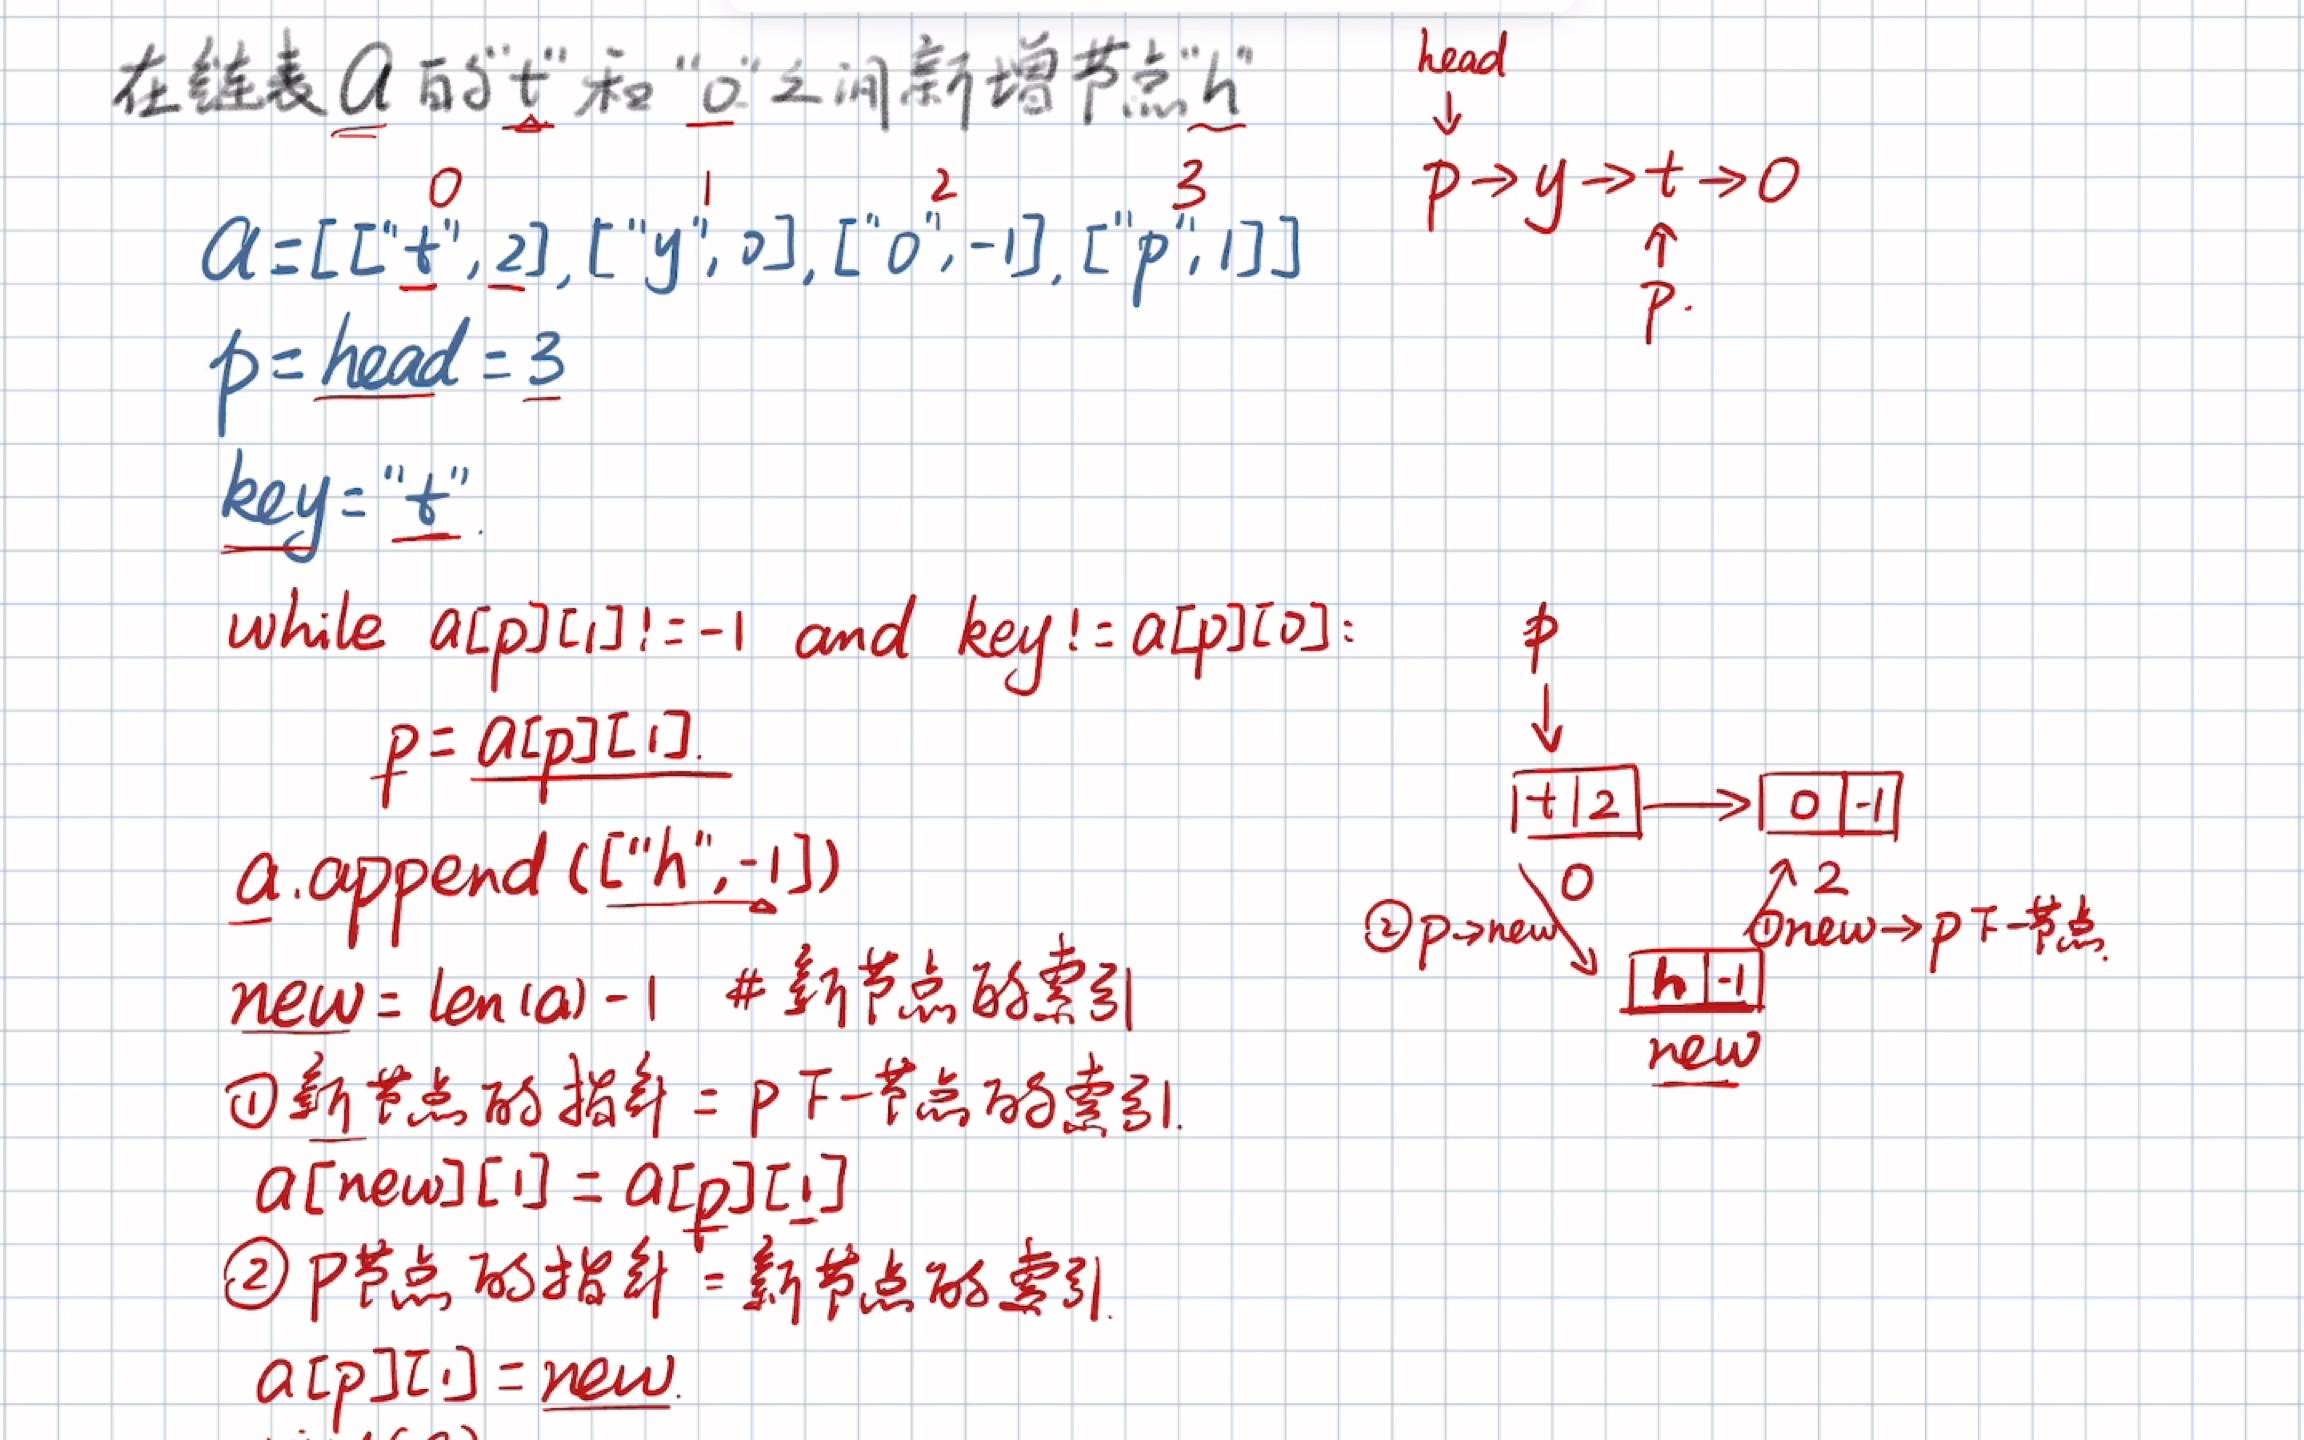 在链表a的"t"和"o"之间新增节点"h"
0 1 2 3
a=[["t",2],["y",0],["o",-1],["p",1]]
p=head=3
key="t".
while a[p][1]!=-1 and key!=a[p][0]:
p=a[p][1].
a.append(["h",-1])
new=len(a)-1 #新节点的索引
①新节点的指针=p下一节点的索引.
a[new][1]=a[p][1]
②p节点的指针=新节点的索引.
a[p][1]=new.
head
↓
p→y→t→o
↑
p.
p
↓
t|2 → o|-1
0 2
②p→new ①new→p下一节点.
h|-1
new